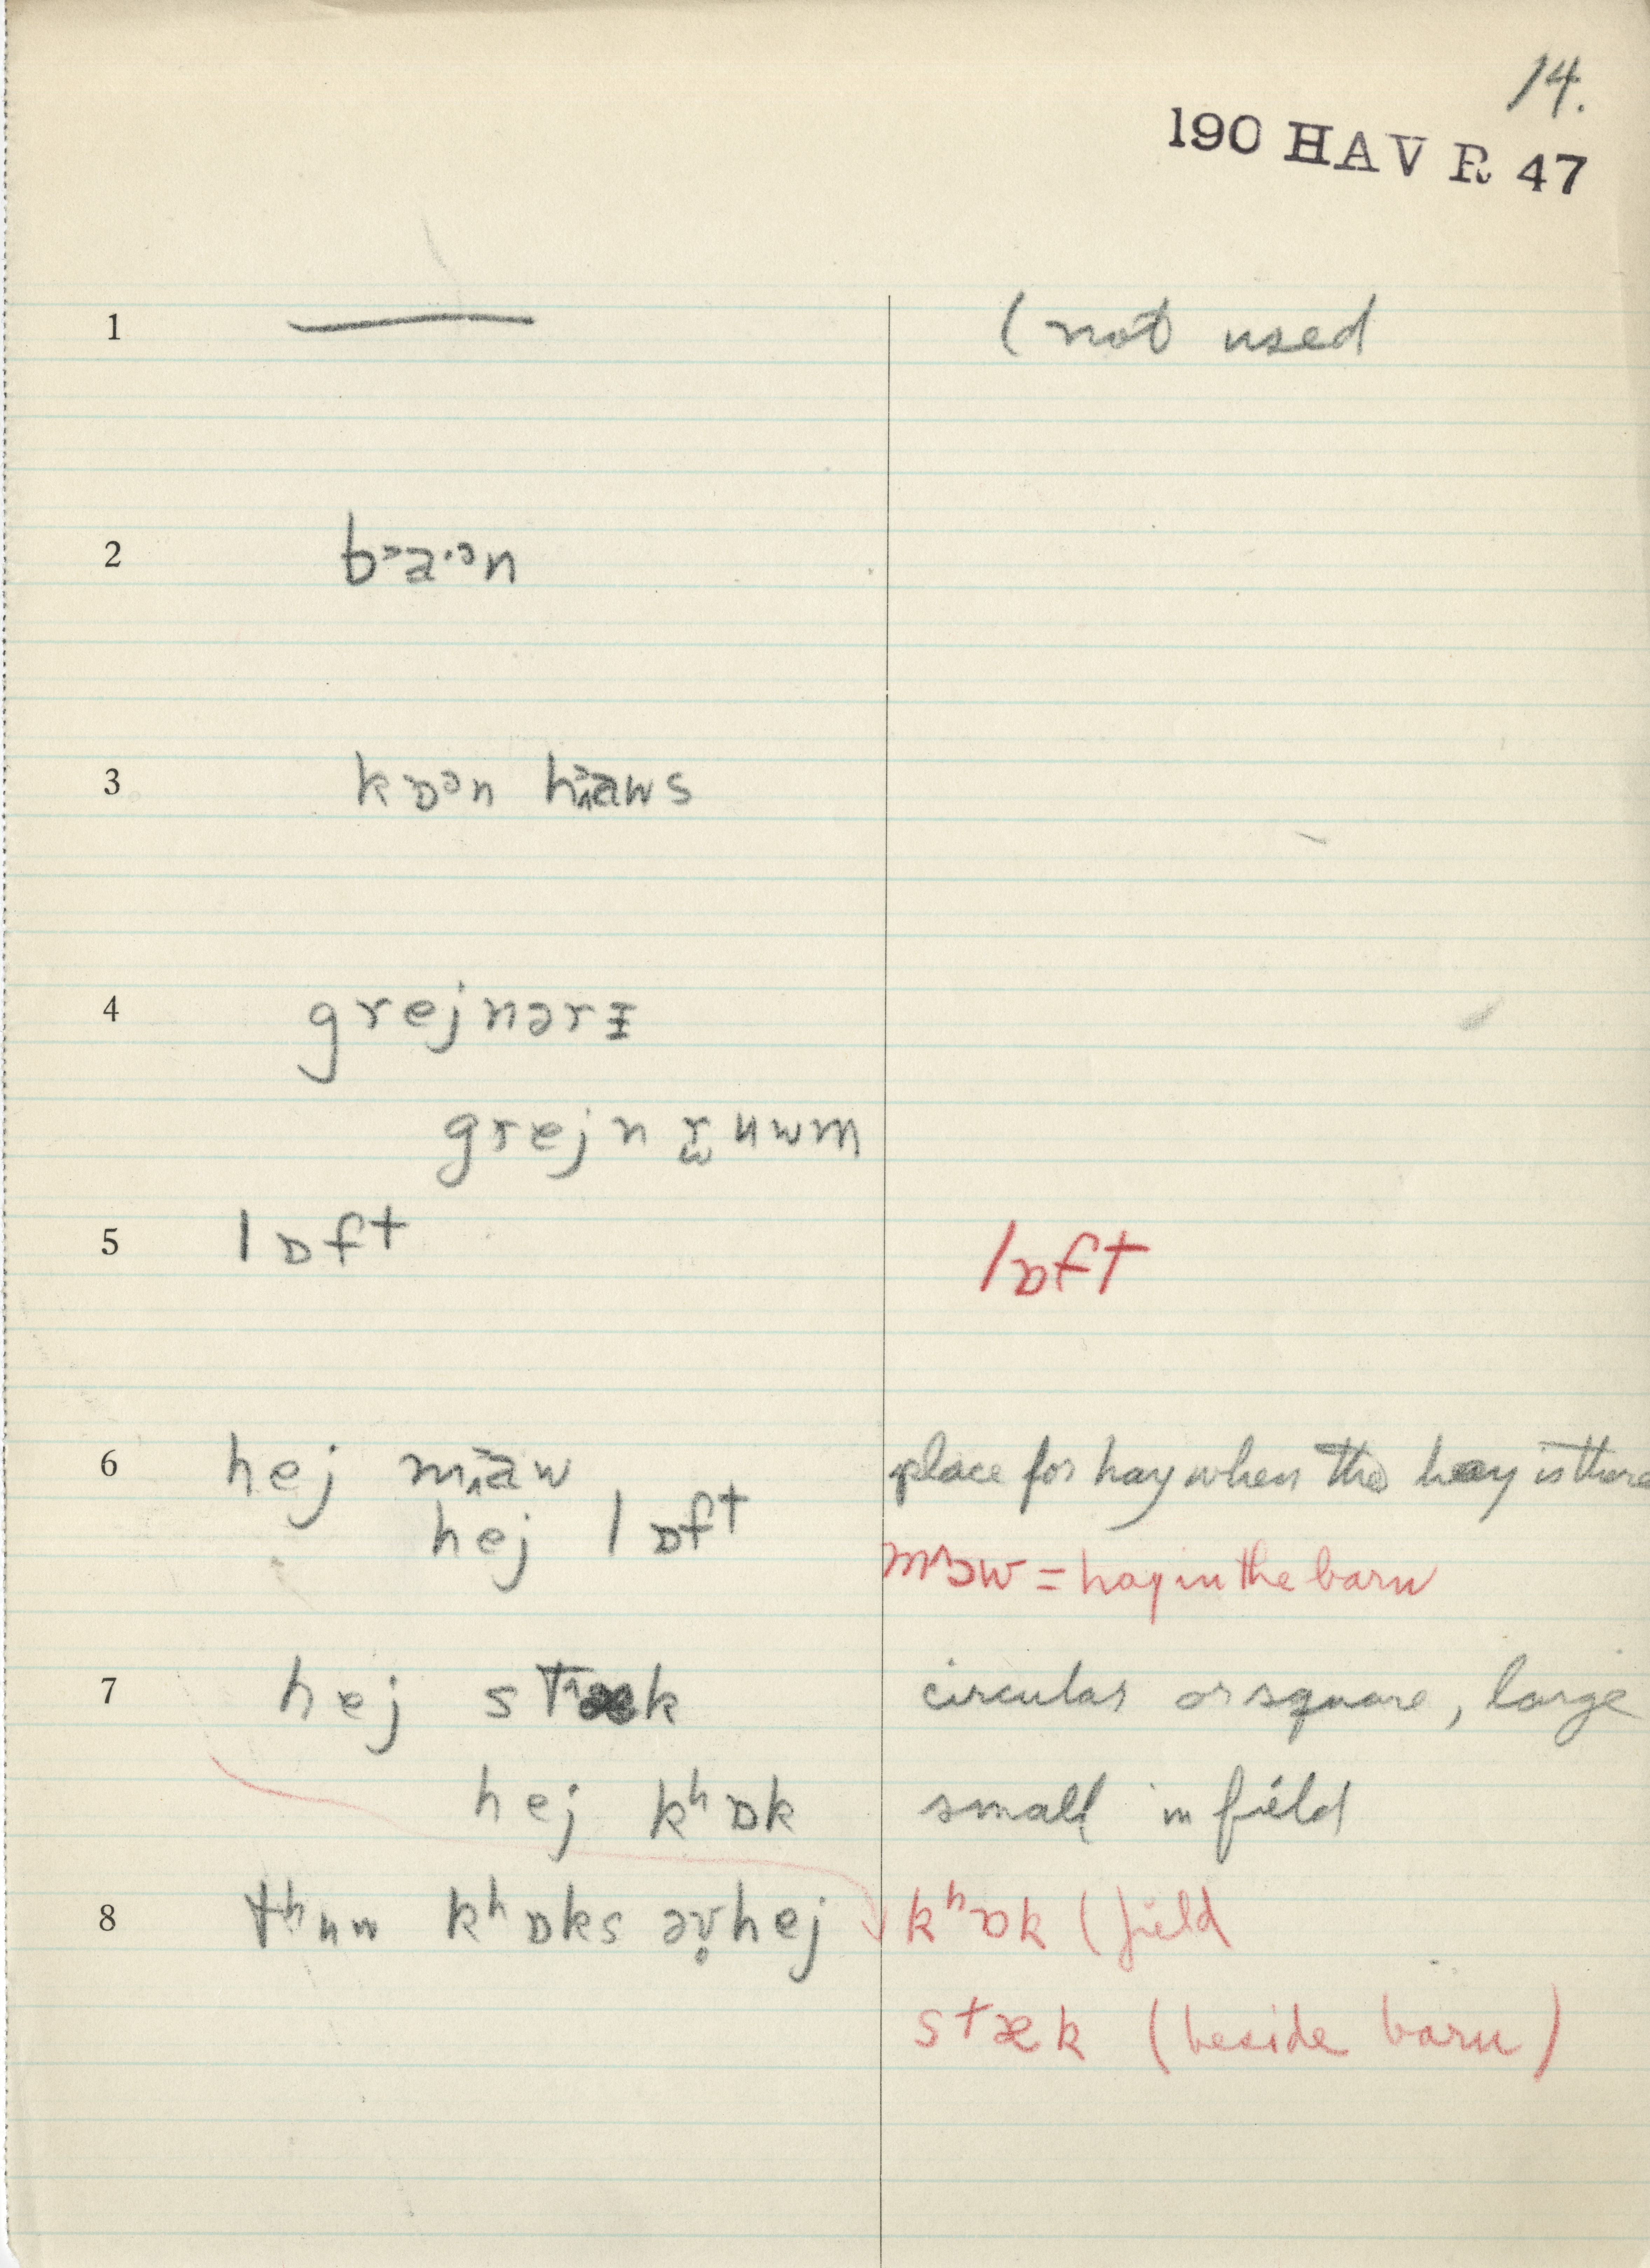 14.
190 HAV R 47
1 (not used
2 b˃a·ᵊn
3 kɒᵊn haws
4 grejnərɪ
grejn rʉwm
5 lɒft lɒft
6 hej maw place for hay when the hay is there
hej lɒft
= hay in the barn
7 hej stæk circular or square, large
hej kʰɒk small in field
8 tʰʉw kʰɒks əv̥hej kʰɒk (field
stæk (beside barn)